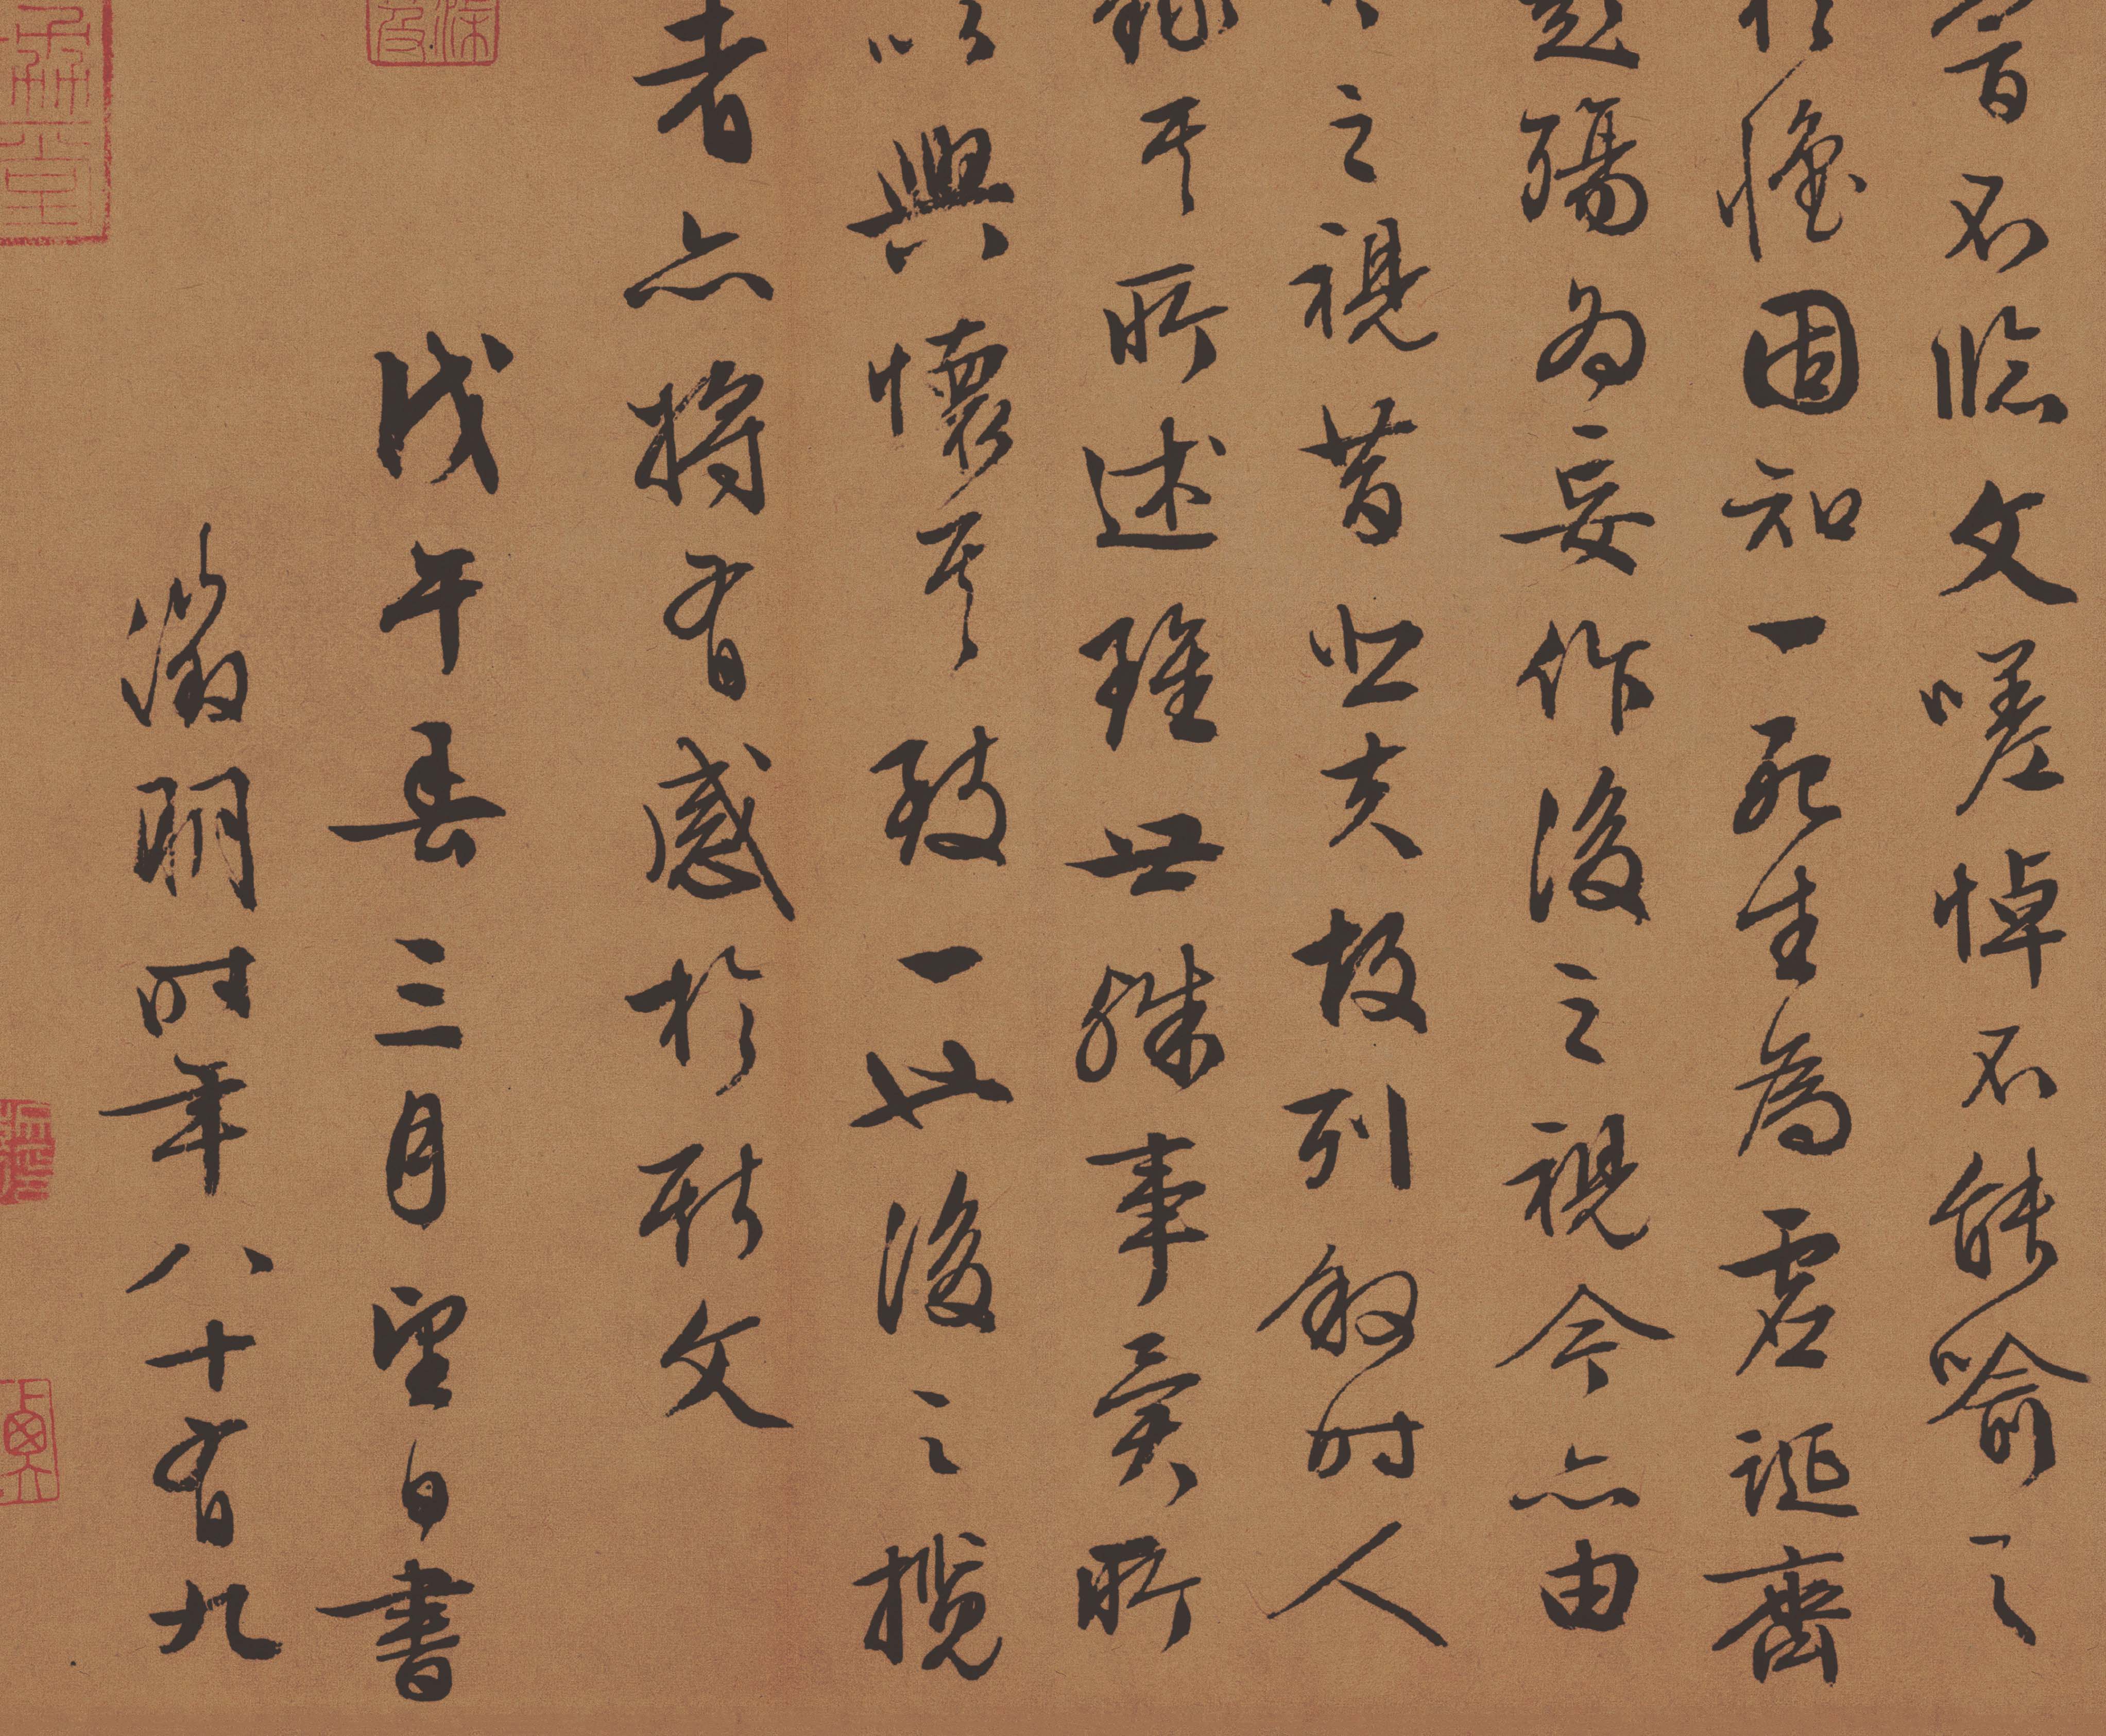 不臨文嗟悼不能喻之
於懷固知一死生為虛誕齊
殤為妄作後之視今亦由
之視昔悲夫故列敘時人
錄其所述雖世殊事異所
以興懷其致一也後之攬
者亦將有感於斯文
戊午春三月望日書
徵明時年八十有九